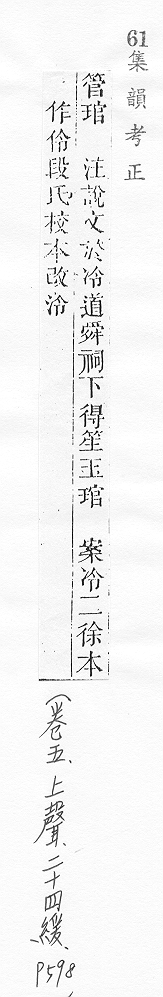 61集韻考正
管琯　注說文於冷道舜祠下得笙玉琯　案冷二徐本
作伶段氏校本改泠
(卷五、上聲、二十四緩、P598